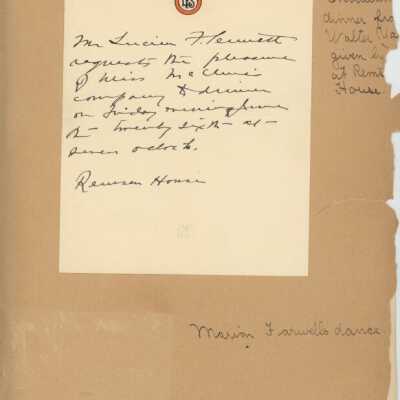 Mr Lucien F. Sennett
requests the pleasure
of Miss McClure's
company to dinner
on Friday evening June
the twenty sixth at
seven o'clock.
Remsen House
dinner fro
Walter
given by
at Rems
House.
Marion Farwells dance